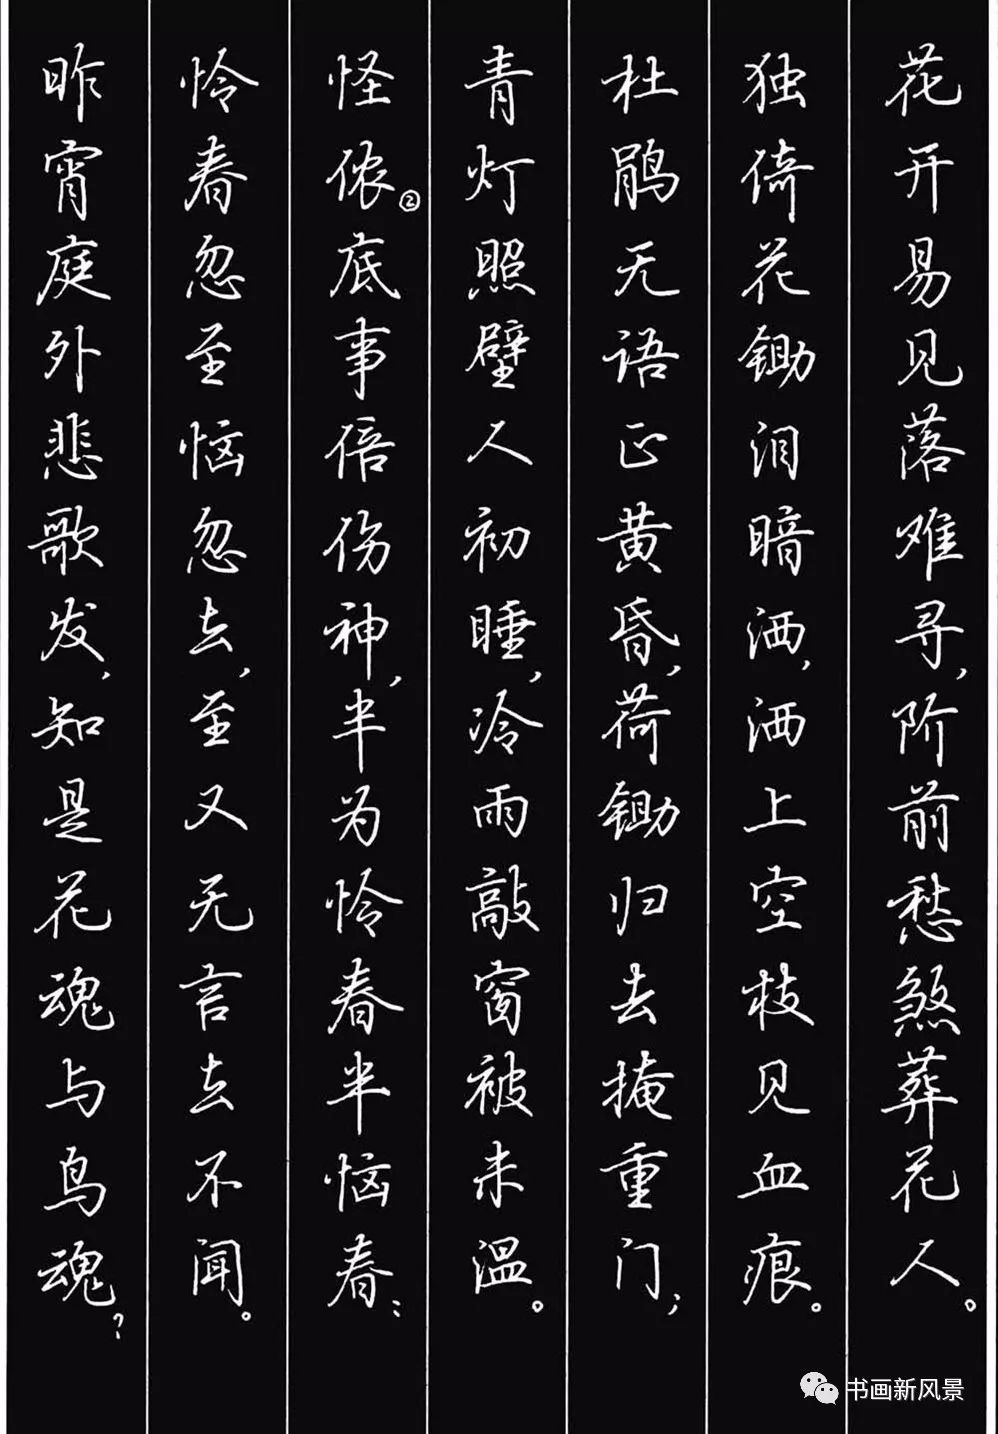 花开易见落难寻,阶前愁煞葬花人。
独倚花锄泪暗洒,洒上空枝见血痕。
杜鹃无语正黄昏,荷锄归去掩重门;
青灯照壁人初睡,冷雨敲窗被未温。
怪侬②底事倍伤神,半为怜春半恼春:
怜春忽至恼忽去,至又无言去不闻。
昨宵庭外悲歌发,知是花魂与鸟魂?
书画新风景